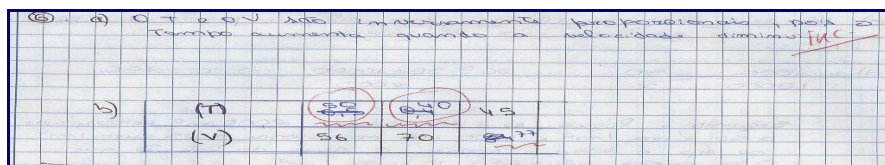 6. a) O T e o V são inversamente proporcionais, pois o
tempo aumenta quando a velocidade diminui INC.
b) (T) 50 40 45
(V) 56 70 77